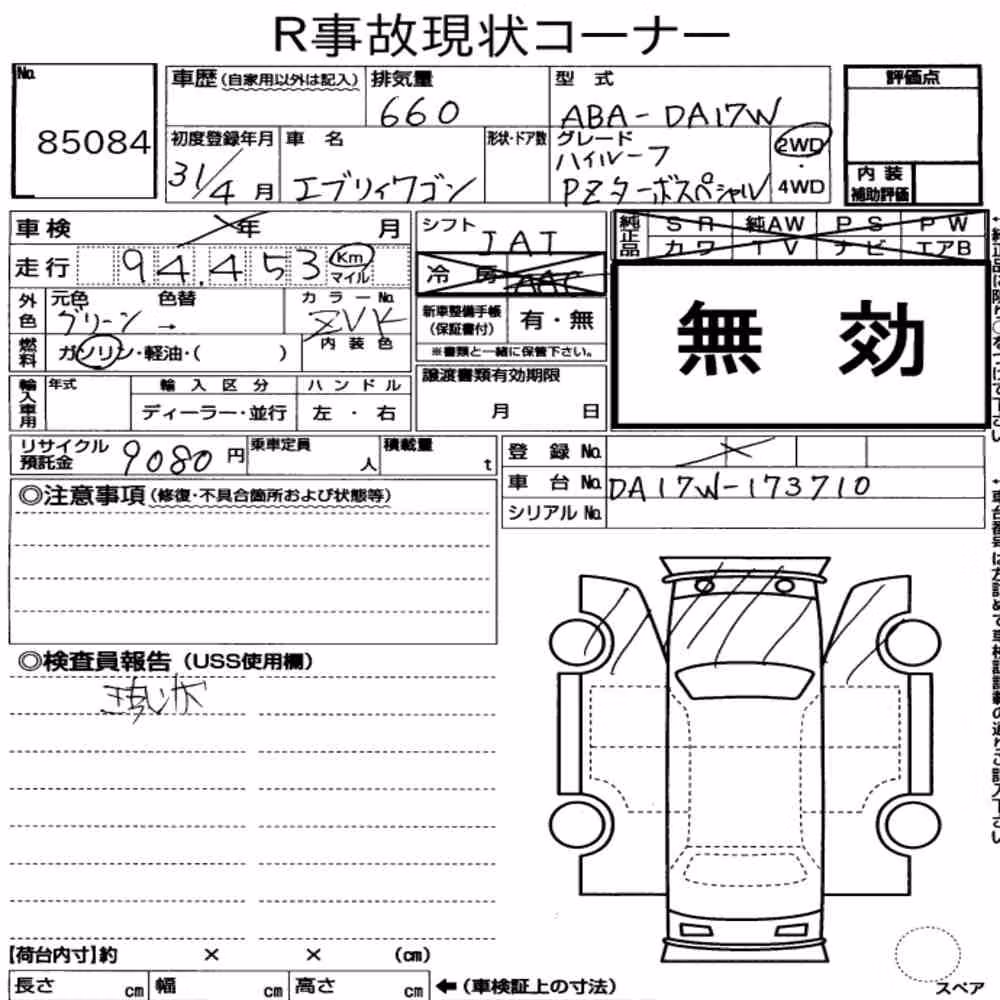 R事故現状コーナー
No. 85084
車歴(自家用以外は記入) 排気量 660 型式 ABA-DA17W
評価点
内装補助評価
初度登録年月 31/4月 車名 エブリィワゴン 形状・ドア数 グレード ハイルーフ PZターボスペシャル 2WD・4WD
車検 年 月
シフト IAT
純正品 SR 純AW PS PW
カワ TV ナビ エアB
走行 94,453 Km マイル
冷房 AAC
無効
外色 元色 グリーン 色替 → カラーNo. ZVK
新車整備手帳(保証書付) 有・無
※書類と一緒に保管下さい。
燃料 ガソリン・軽油・( ) 内装色
輸入車用 年式 輸入区分 ハンドル
ディーラー・並行 左・右
譲渡書類有効期限
月 日
リサイクル預託金 9080円 乗車定員 人 積載量 t
登録No.
車台No. DA17W-173710
シリアルNo.
◎注意事項(修復・不具合箇所および状態等)
◎検査員報告(USS使用欄)
現状
【荷台内寸】約 × × (cm)
長さ cm 幅 cm 高さ cm ←(車検証上の寸法)
スペア